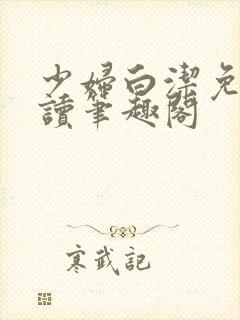 少婦白潔免
讀筆趣閣
寒武記